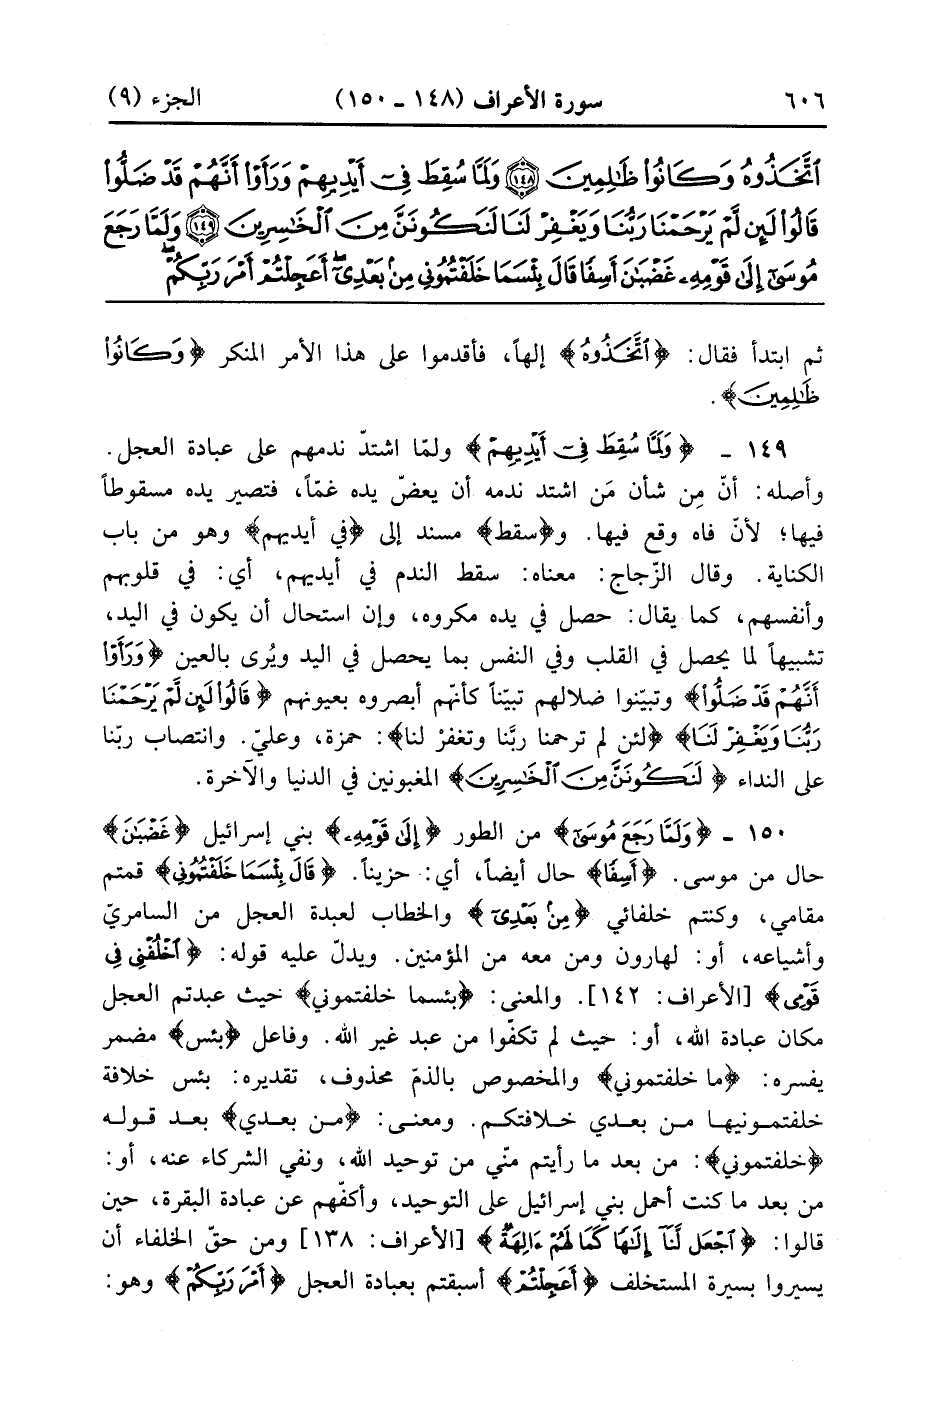 ٦٠٦ سورة الأعراف (١٤٨ ـ ١٥٠) الجزء (٩)
ٱتَّخَذُوهُ وَكَانُوا۟ ظَـٰلِمِينَ ١٤٨ وَلَمَّا سُقِطَ فِىٓ أَيْدِيهِمْ وَرَأَوْا۟ أَنَّهُمْ قَدْ ضَلُّوا۟
قَالُوا۟ لَئِن لَّمْ يَرْحَمْنَا رَبُّنَا وَيَغْفِرْ لَنَا لَنَكُونَنَّ مِنَ ٱلْخَـٰسِرِينَ ١٤٩ وَلَمَّا رَجَعَ
مُوسَىٰٓ إِلَىٰ قَوْمِهِۦ غَضْبَـٰنَ أَسِفًا قَالَ بِئْسَمَا خَلَفْتُمُونِى مِنۢ بَعْدِىٓ ۖ أَعَجِلْتُمْ أَمْرَ رَبِّكُمْ ۖ
ثم ابتدأ فقال: ﴿ٱتَّخَذُوهُ﴾ إلهاً، فأقدموا على هذا الأمر المنكر ﴿وَكَانُوا۟
ظَـٰلِمِينَ﴾.
١٤٩ ـ ﴿وَلَمَّا سُقِطَ فِىٓ أَيْدِيهِمْ﴾ ولمّا اشتدّ ندمهم على عبادة العجل.
وأصله: أنّ مِن شأن مَن اشتد ندمه أن يعضّ يده غمّاً، فتصير يده مسقوطاً
فيها؛ لأنّ فاه وقع فيها. و﴿سقط﴾ مسند إلى ﴿في أيديهم﴾ وهو من باب
الكناية. وقال الزّجاج: معناه: سقط الندم في أيديهم، أي: في قلوبهم
وأنفسهم، كما يقال: حصل في يده مكروه، وإن استحال أن يكون في اليد،
تشبيهاً لما يحصل في القلب وفي النفس بما يحصل في اليد ويُرى بالعين ﴿وَرَأَوْا۟
أَنَّهُمْ قَدْ ضَلُّوا۟﴾ وتبيّنوا ضلالهم تبيّناً كأنّهم أبصروه بعيونهم ﴿قَالُوا۟ لَئِن لَّمْ يَرْحَمْنَا
رَبُّنَا وَيَغْفِرْ لَنَا﴾ ﴿لئن لم ترحمنا ربَّنا وتغفرْ لنا﴾: حمزة، وعليّ. وانتصاب ربّنا
على النداء ﴿لَنَكُونَنَّ مِنَ ٱلْخَـٰسِرِينَ﴾ المغبونين في الدنيا والآخرة.
١٥٠ ـ ﴿وَلَمَّا رَجَعَ مُوسَىٰٓ﴾ من الطور ﴿إِلَىٰ قَوْمِهِۦ﴾ بني إسرائيل ﴿غَضْبَـٰنَ﴾
حال من موسى. ﴿أَسِفًا﴾ حال أيضاً، أي: حزيناً. ﴿قَالَ بِئْسَمَا خَلَفْتُمُونِى﴾ قمتم
مقامي، وكنتم خلفائي ﴿مِنۢ بَعْدِىٓ﴾ والخطاب لعبدة العجل من السامريّ
وأشياعه، أو: لهارون ومن معه من المؤمنين. ويدلّ عليه قوله: ﴿ٱخْلُفْنِى فِى
قَوْمِى﴾ [الأعراف: ١٤٢]. والمعنى: ﴿بئسما خلفتموني﴾ حيث عبدتم العجل
مكان عبادة الله، أو: حيث لم تكفّوا من عبد غير الله. وفاعل ﴿بئس﴾ مضمر
يفسره: ﴿ما خلفتموني﴾ والمخصوص بالذمّ محذوف، تقديره: بئس خلافة
خلفتمونيها من بعدي خلافتكم. ومعنى: ﴿من بعدي﴾ بعد قوله
﴿خلفتموني﴾: من بعد ما رأيتم منّي من توحيد الله، ونفي الشركاء عنه، أو:
من بعد ما كنت أحمل بني إسرائيل على التوحيد، وأكفّهم عن عبادة البقرة، حين
قالوا: ﴿ٱجْعَل لَّنَآ إِلَـٰهًا كَمَا لَهُمْ ءَالِهَةٌ﴾ [الأعراف: ١٣٨] ومن حقّ الخلفاء أن
يسيروا بسيرة المستخلف ﴿أَعَجِلْتُمْ﴾ أسبقتم بعبادة العجل ﴿أَمْرَ رَبِّكُمْ﴾ وهو: